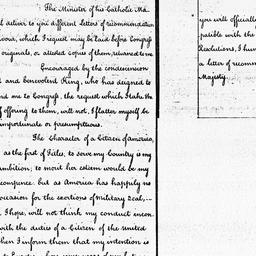 The Minister of his Catholic Ma
d deliver to you different Letters of recommendation
which I request may be laid before Congress
originals, or attested Copies of them, returned to me
Encouraged by the condescension
and benevolent King, who has deigned to
me to Congress, the request which I take the
of offering to them, will not, I flatter myself be
importunate or presumptuous.
The Character of a Citizen of america,
as the first of Titles, to serve my Country is my
ambition; to merit her esteem would be my
recompence: but as America has happily no
occasion for the exertions of Military Zeal,
I hope, will not think my conduct incon
with the duties of a Citizen of the United
when I inform them that my intention is
you will officially
patible with the
Resolutions, I hum
a letter of recomm
Majesty.